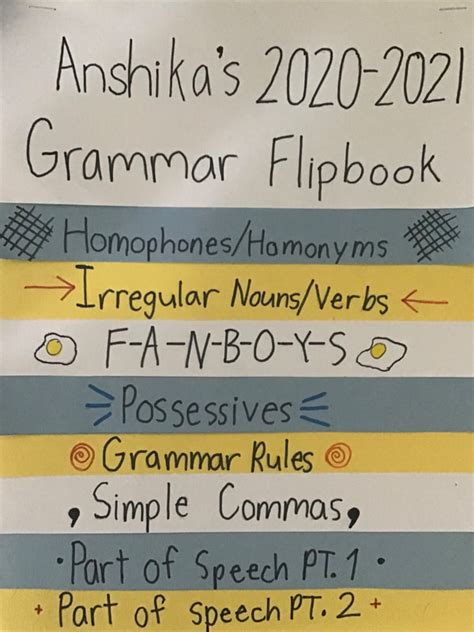 Anshika's 2020-2021
Grammar Flipbook
Homophones/Homonyms
Irregular Nouns/Verbs
F-A-N-B-O-Y-S
Possessives
Grammar Rules
, Simple Commas,
·Part of Speech PT. 1 ·
+ Part of speech PT. 2 +